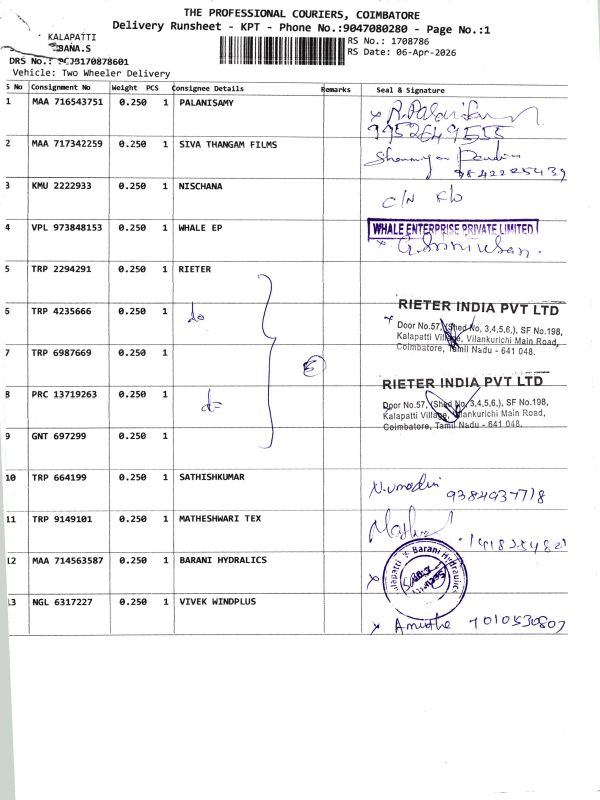 THE PROFESSIONAL COURIERS, COIMBATORE
Delivery Runsheet - KPT - Phone No.:9047080280 - Page No.:1
KALAPATTI
BANA.S
RS No.: 1708786
RS Date: 06-Apr-2026
DRS No.: PCJB170878601
Vehicle: Two Wheeler Delivery
S No Consignment No Weight PCS Consignee Details Remarks Seal & Signature
1 MAA 716543751 0.250 1 PALANISAMY
9952649555
2 MAA 717342259 0.250 1 SIVA THANGAM FILMS
9842225439
3 KMU 2222933 0.250 1 NISCHANA
C/N
4 VPL 973848153 0.250 1 WHALE EP
WHALE ENTERPRISE PRIVATE LIMITED
5 TRP 2294291 0.250 1 RIETER
6 TRP 4235666 0.250 1 do
RIETER INDIA PVT LTD
Door No.57, (Shed No, 3,4,5,6,), SF No.198,
Kalapatti Village, Vilankurichi Main Road,
Coimbatore, Tamil Nadu - 641 048.
7 TRP 6987669 0.250 1
5
8 PRC 13719263 0.250 1
RIETER INDIA PVT LTD
Door No.57, (Shed No, 3,4,5,6,), SF No.198,
Kalapatti Village, Vilankurichi Main Road,
Coimbatore, Tamil Nadu - 641 048.
9 GNT 697299 0.250 1
10 TRP 664199 0.250 1 SATHISHKUMAR
11 TRP 9149101 0.250 1 MATHESHWARI TEX
12 MAA 714563587 0.250 1 BARANI HYDRALICS
Barani Hydraulics
13 NGL 6317227 0.250 1 VIVEK WINDPLUS